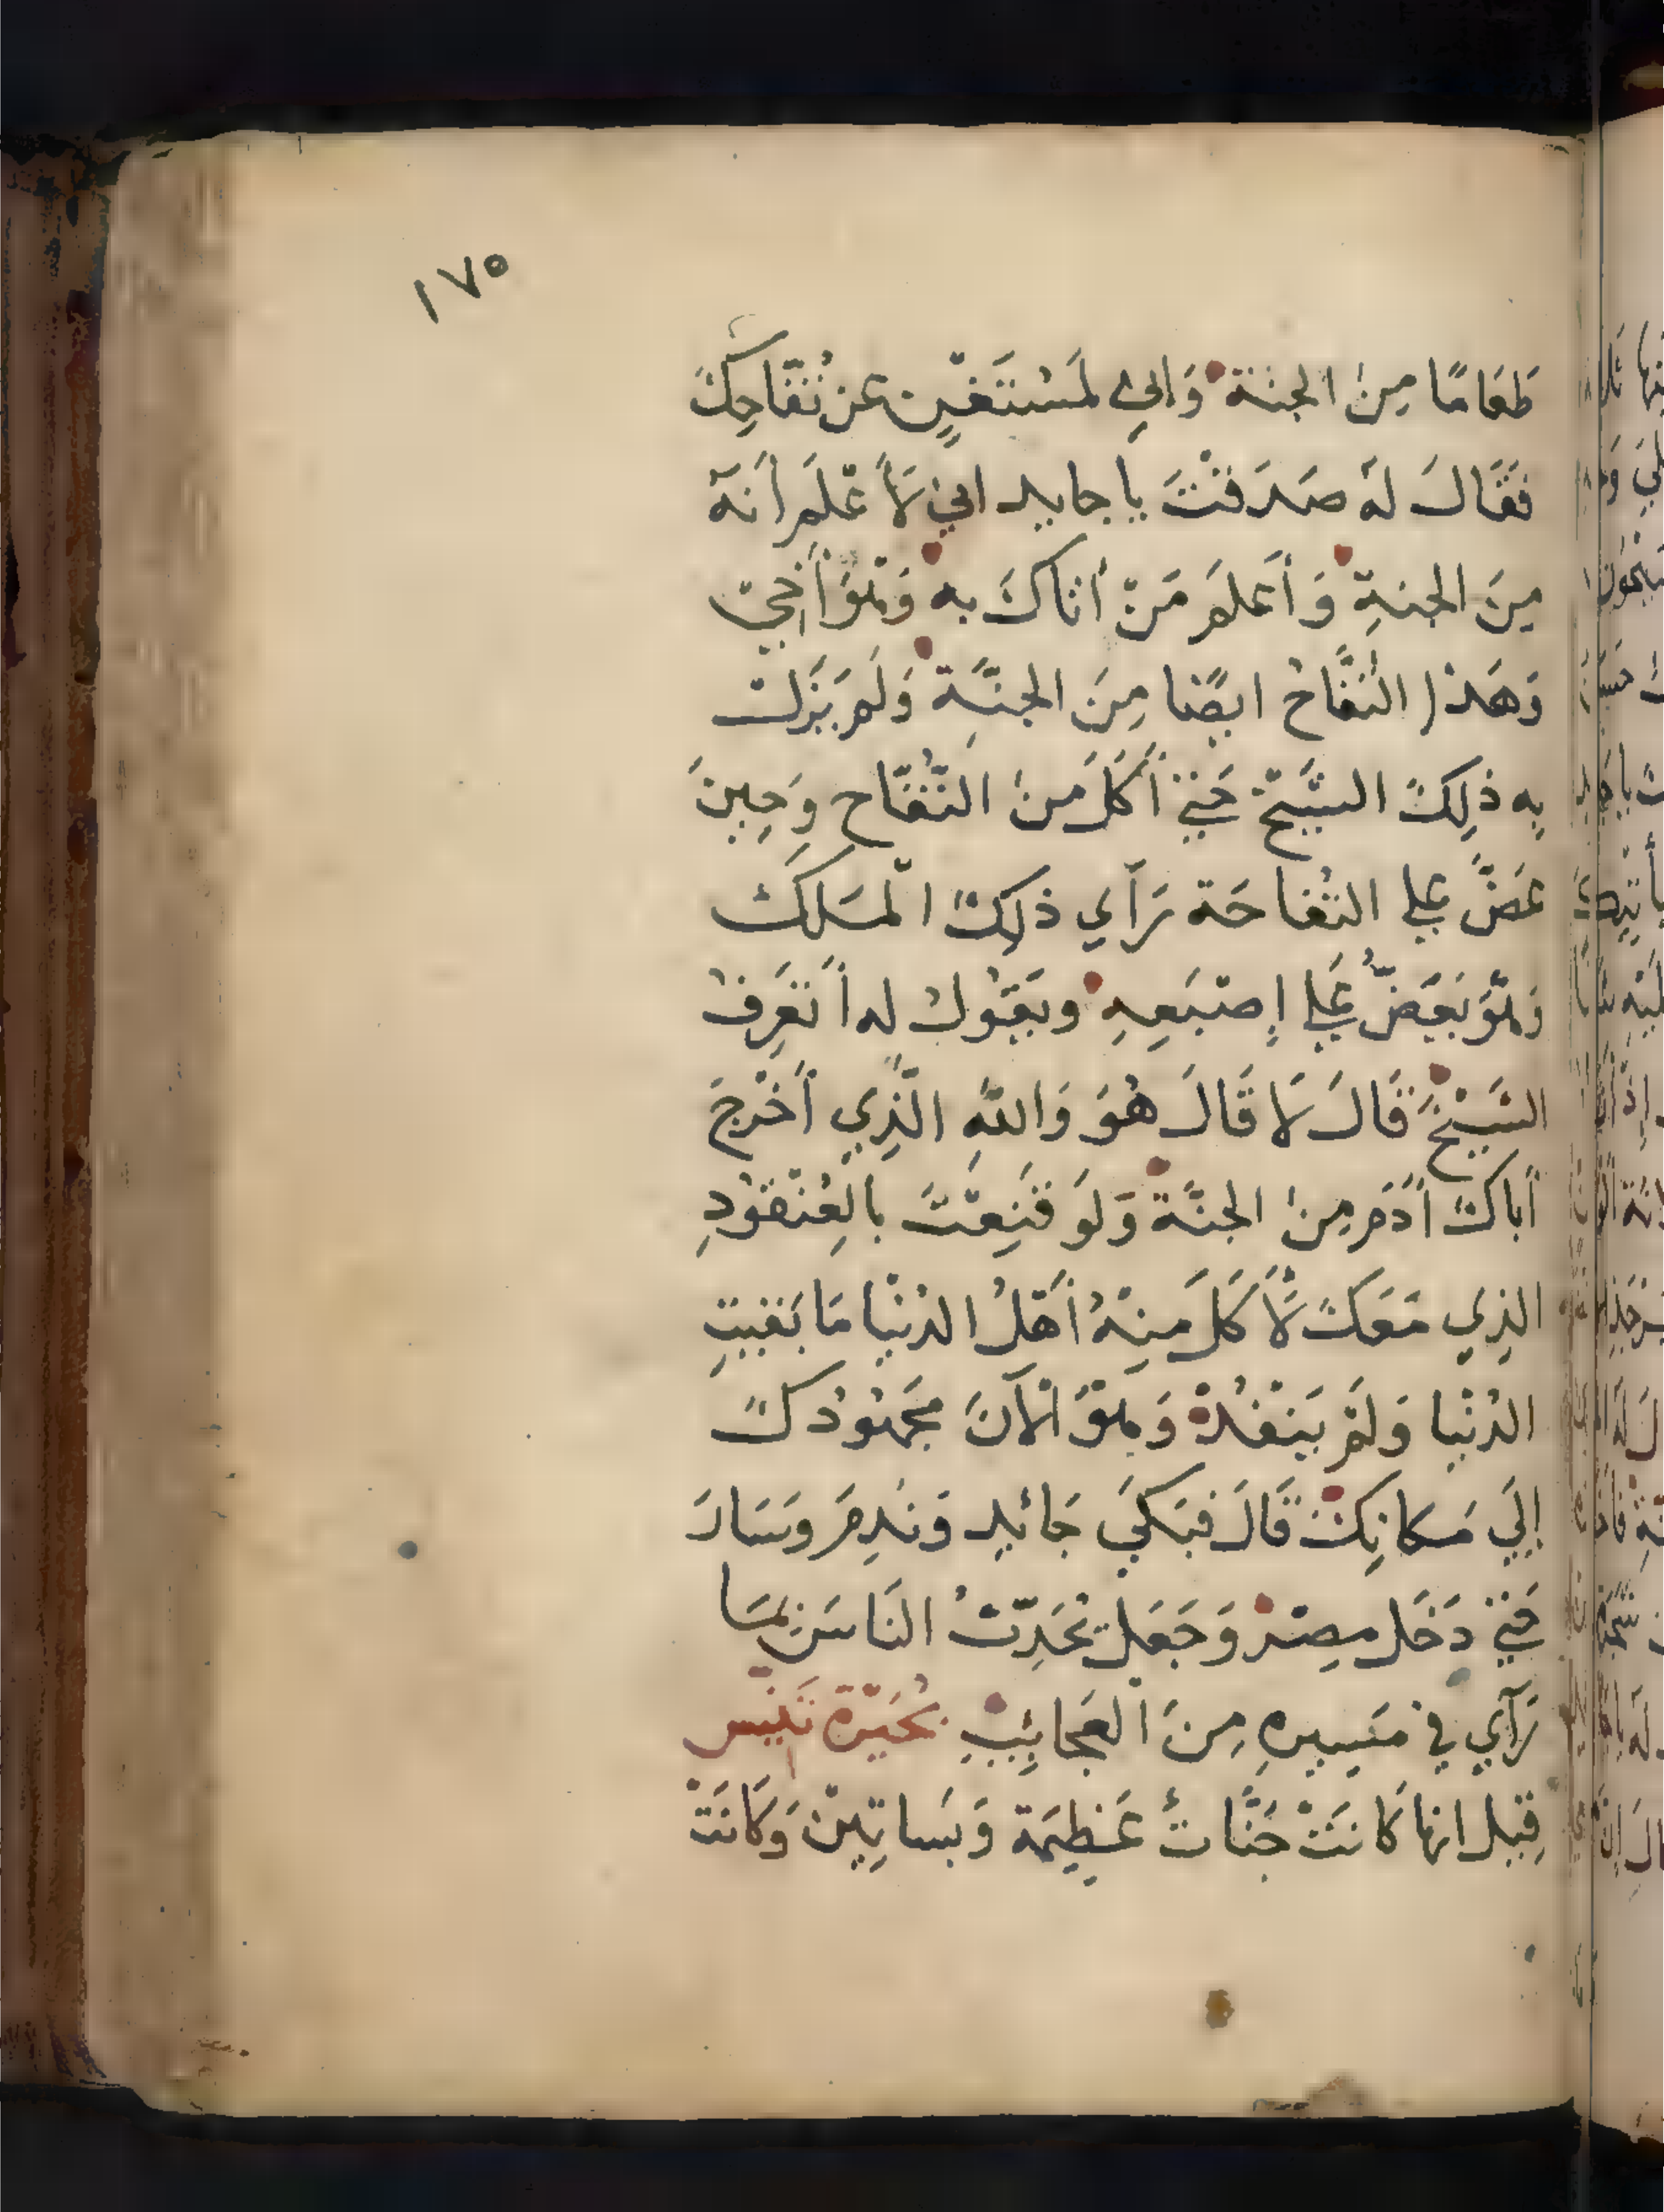 ١٧٥
طَعَامًا مِنَ الجنة وَاني لَمُسْتَغْنٍ عن تُفّاحِكَ
فَقَالَ لَهُ صَدَقْتَ يا حايد اني لَأَعْلَم أَنَهُ
مِنَ الجنةِ وَأَعلَم مَنْ أتاكَ به وَهُوَ أَخِيْ
وَهَذا التُفَّاحُ ايضًا مِنَ الجنَّةِ وَلَم يَزَل
بِه ذلِكَ الشَّيْخ حَتي أَكَلَ مِنَ التُّفّاح وَحِينَ
عَضَّ علي التُفاحَة رَآي ذلِكَ الْمَلَكَ
وَهُوَ يَعَضُّ عَلي إِصْبَعِهِ ويَقُولُ له أَتَعْرِفُ
الشَيْخَ قَالَ لَا قَالَ هُوَ وَاللَّهِ الَّذِي أَخْرَجَ
أَباكَ أَدَم مِنَ الجنَّة وَلَو قَنِعْتَ بالعُنْقُودِ
الذِي مَعَكَ لَأَكَلَ مِنْهُ أَهْلُ الدُنْيَا مَا بَقيتِ
الدُنْيا وَلَمْ يَنْفُدْ وَهُوَ الْآنَ مَجْهُودُكَ
إلَي مَكانِكَ قَالَ فبَكَي حَائِد وَنَدِمَ وسَارَ
حَتي دَخَل مِصْرَ وَجَعَل يُحَدِّثُ النَاسَ بمَا
رَآي في مَسِيرهِ مِنَ الْعَجائِبِ بُحَيْرَة تَنّيس
قِيل انها كَانَتْ جَنَّاتٌ عَظِيمَة وَبَساتِيْن وَكَانَتْ